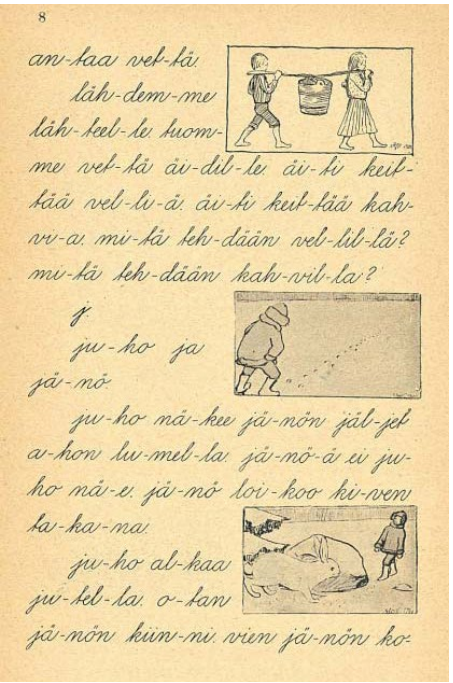 8
an-taa vet-tä.
läh-dem-me
läh-teel-le. tuom-
me vet-tä äi-dil-le. äi-ti keit-
tää vel-li-ä. äi-ti keit-tää kah-
vi-a. mi-tä teh-dään vel-lil-lä?
mi-tä teh-dään kah-vil-la?
j.
ju-ho ja
jä-nö.
ju-ho nä-kee jä-nön jäl-jet
a-hon lu-mel-la. jä-nö-ä ei ju-
ho nä-e. jä-nö loi-koo ki-ven
ta-ka-na.
ju-ho al-kaa
ju-tel-la. o-tan
jä-nön kiin-ni. vien jä-nön ko-